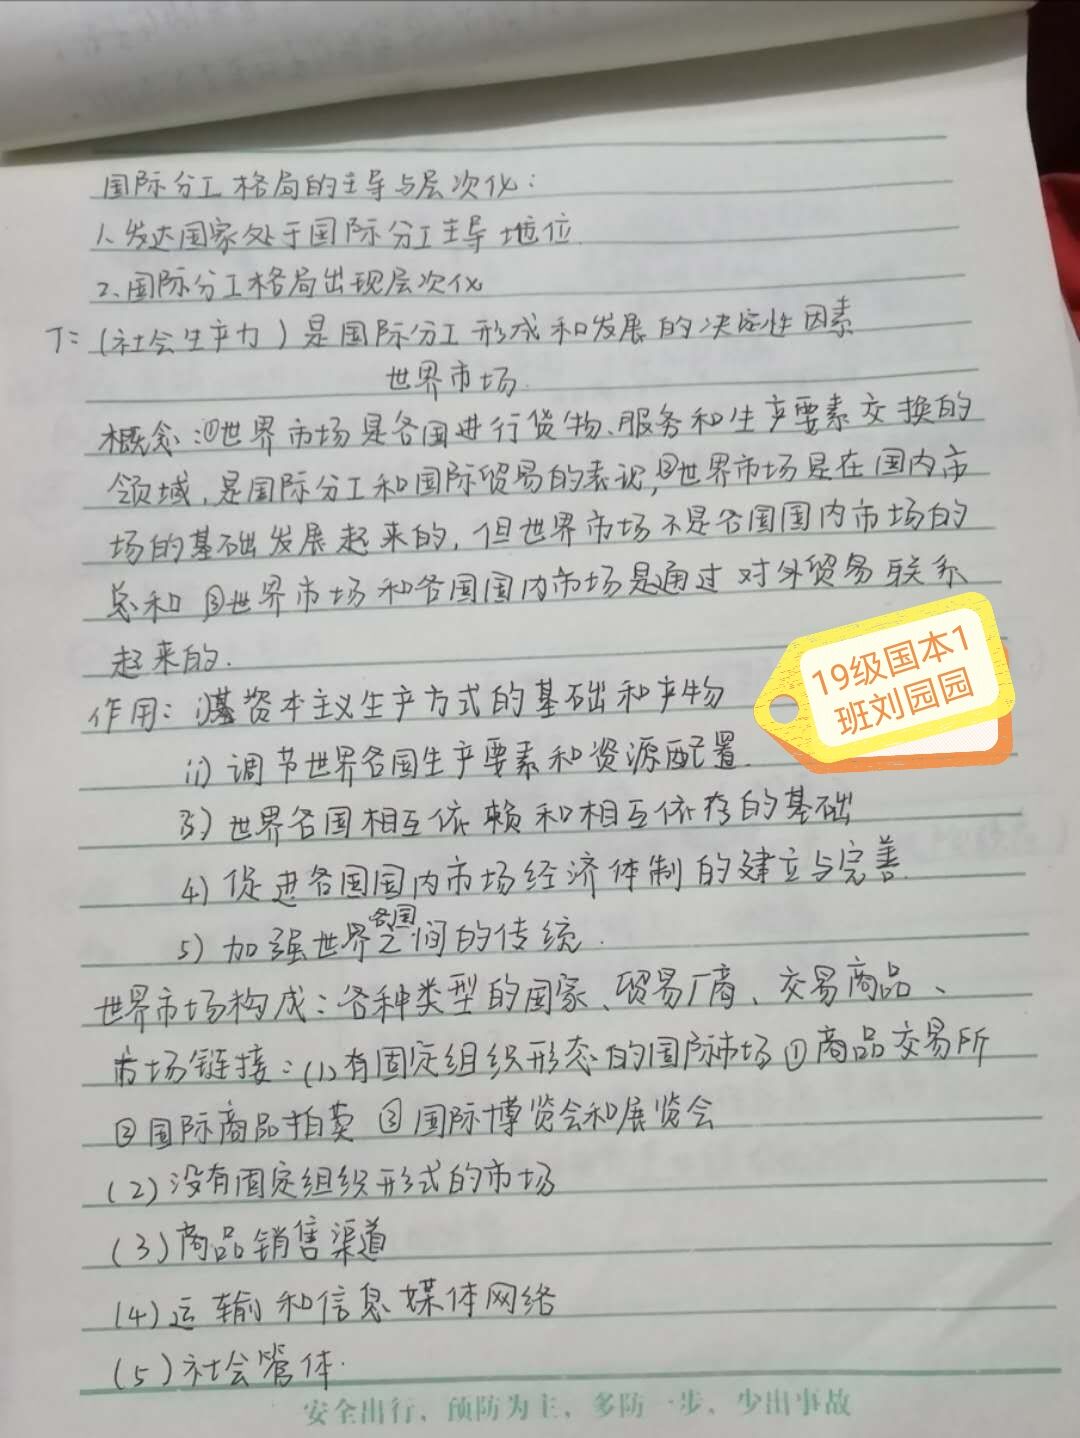 国际分工格局的主导与层次化:
1、发达国家处于国际分工主导地位
2、国际分工格局出现层次化
T: (社会生产力)是国际分工形成和发展的决定性因素
世界市场.
概念:①世界市场是各国进行货物、服务和生产要素交换的
领域,是国际分工和国际贸易的表现,②世界市场是在国内市
场的基础发展起来的,但世界市场不是各国国内市场的
总和 ③世界市场和各国国内市场是通过对外贸易联系
起来的.
作用: 资本主义生产方式的基础和产物
调节世界各国生产要素和资源配置.
3) 世界各国相互依赖和相互依存的基础
4) 促进各国国内市场经济体制的建立与完善.
5) 加强世界各国之间的传统.
世界市场构成:各种类型的国家、贸易厂商、交易商品、
市场链接:(1)有固定组织形态的国际市场 ①商品交易所
②国际商品拍卖 ③国际博览会和展览会
(2)没有固定组织形式的市场
(3)商品销售渠道
(4)运输和信息媒体网络
(5)社会管体.
19级国本1
班刘园园
安全出行,预防为主,多防一步,少出事故